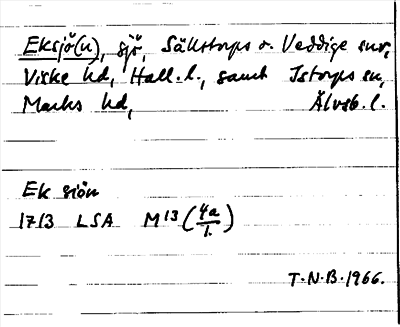 Eksjö(n), sjö, Sällstorps o. Veddige snr,
Viske hd, Hall. l., samt Istorps sn,
Marks hd, Älvsb. l.
Ek siön
1713 LSA M13 (4a/1.)
T.N.B. 1966.